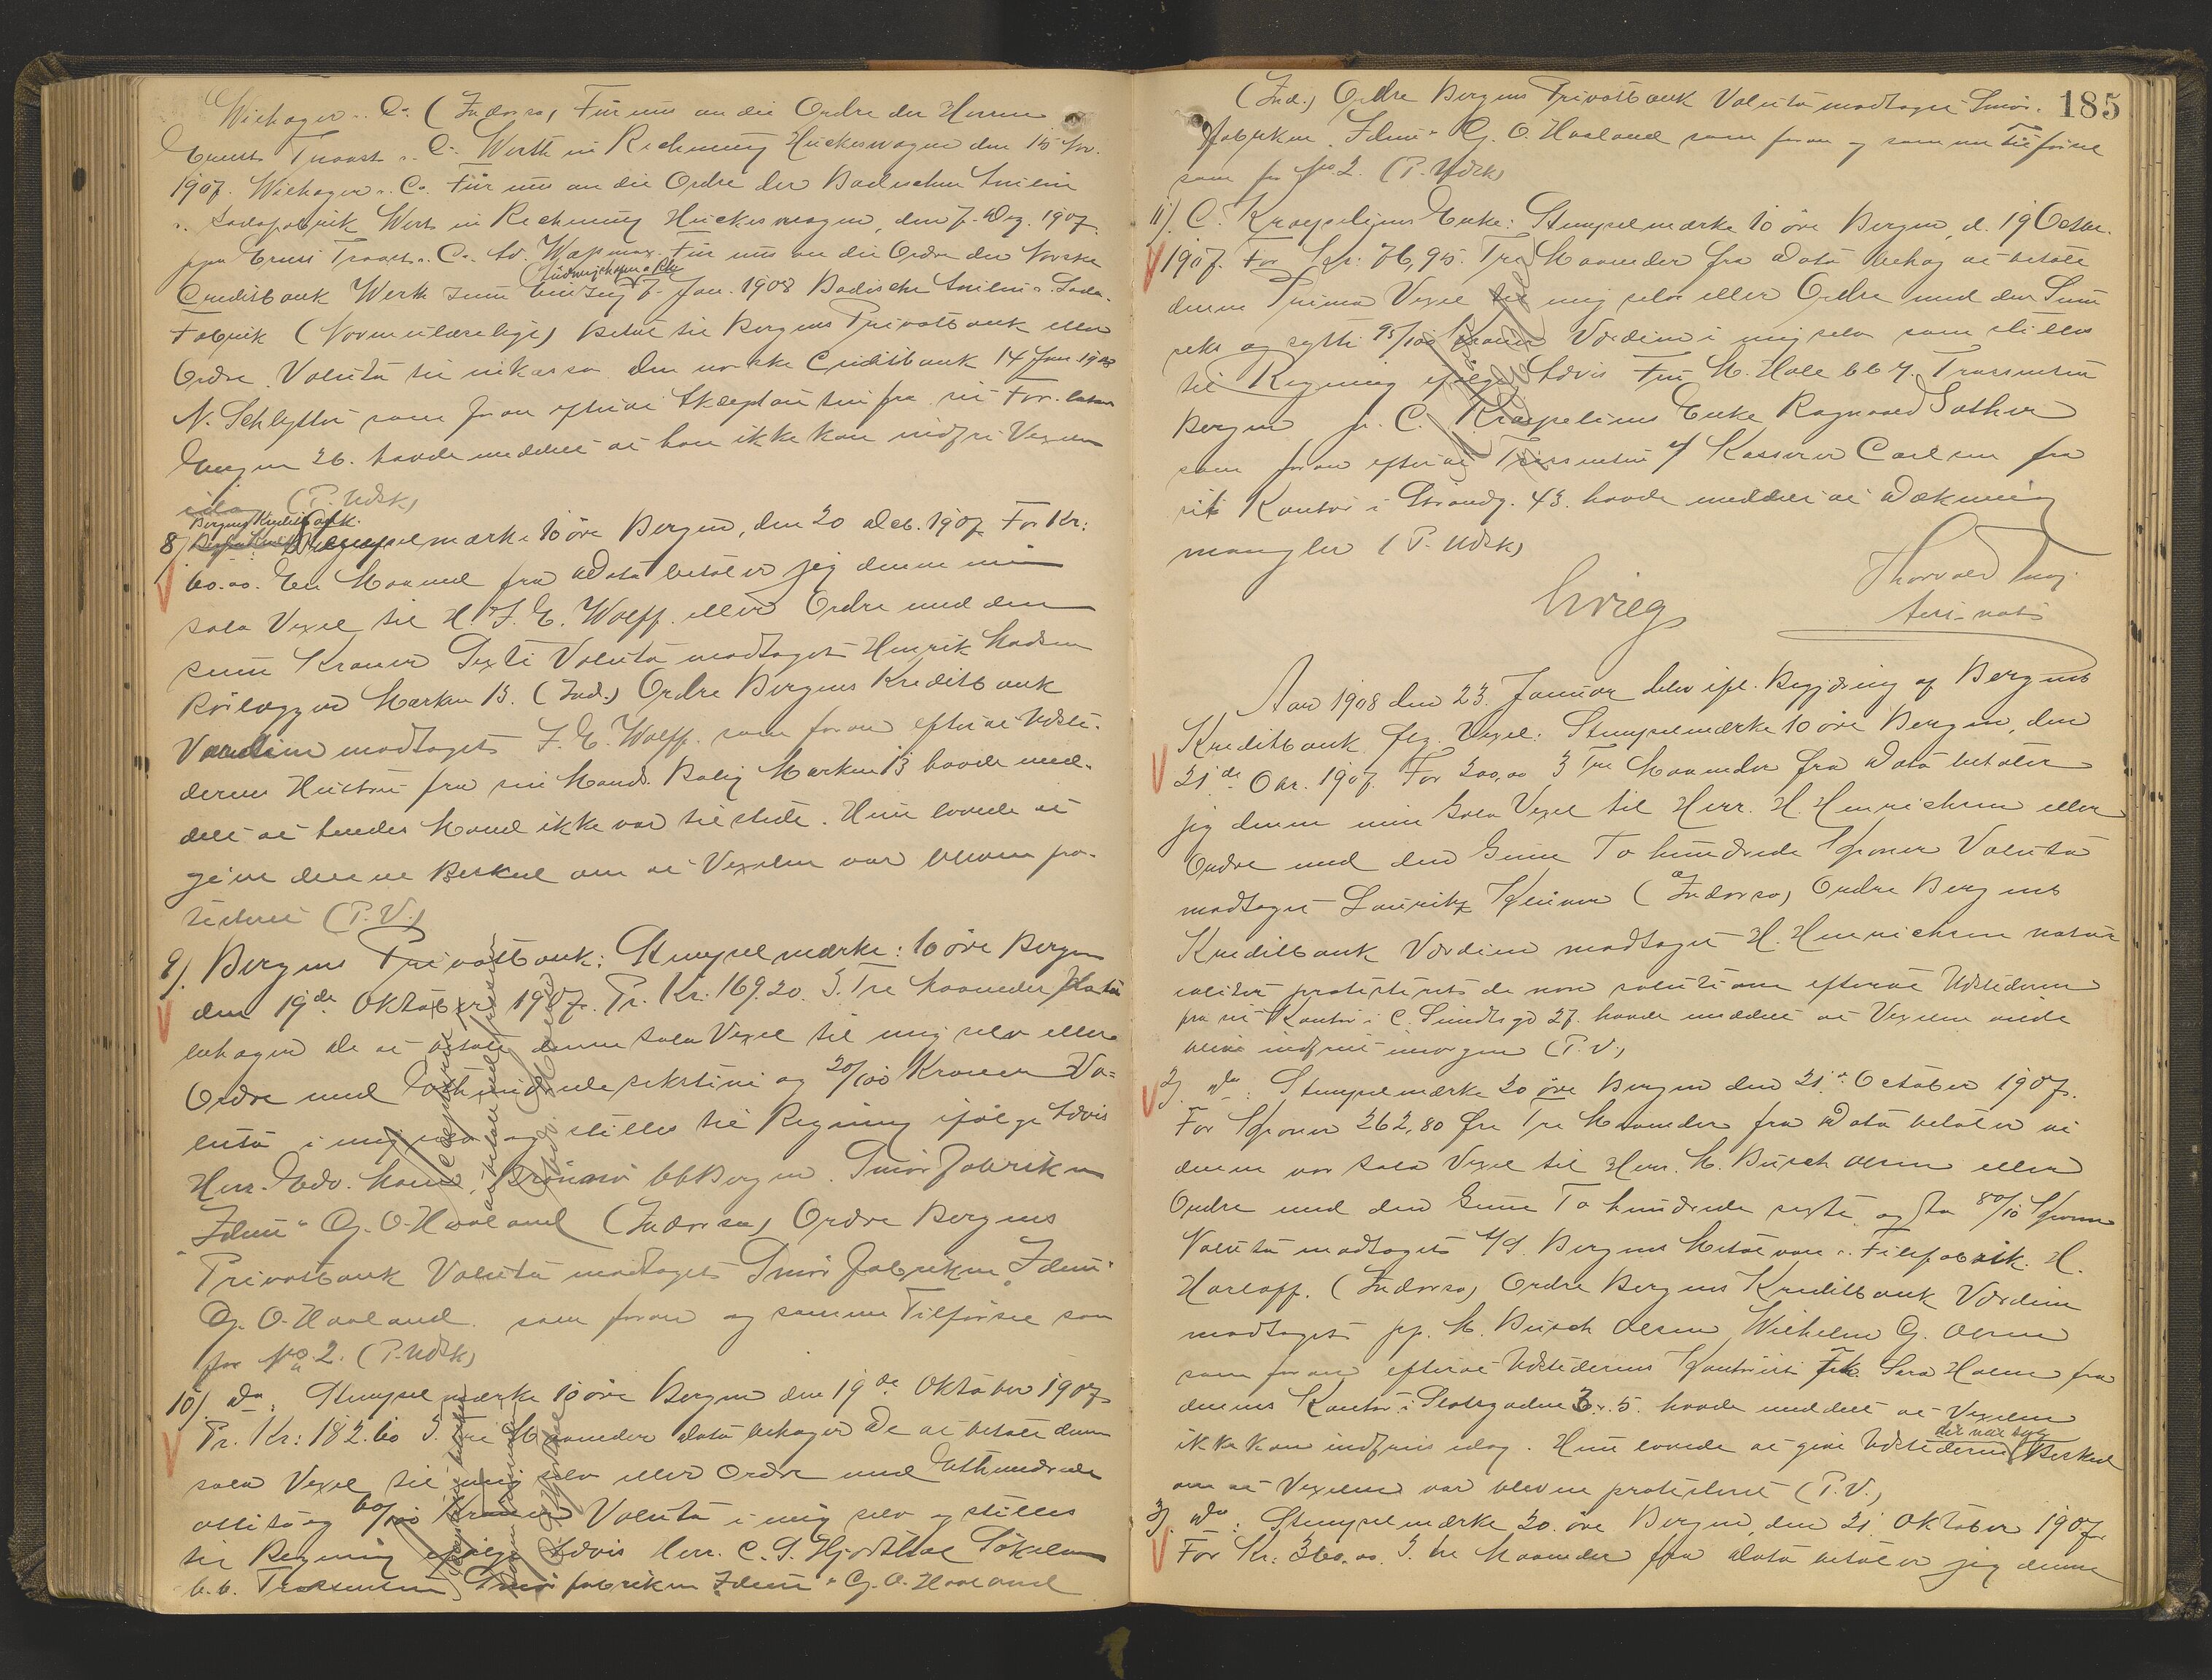 Wichager & Co. (Indorso) Für uns an die Ordre der Herren
Ernst Traast & Co. Werth in Rechnung Hückeswagen den 15 Nov.
1907. Wichager & Co. Für uns an die Ordre der Badischen Anilin
& Sodafabrik Werth in Rechnung Hückeswagen, den 7. Dez. 1907.
ppa Ernst Traast & Co. Für uns an die Ordre der Norske
Ludwigshafen a Rh
Creditbank Werth zum Einzug 7. Jan. 1908 Badische Anilin & Soda-
Fabrik (Navn ulæselige) Betal til Bergens Privatbank eller
Ordre. Valuta til inkasso den norske Creditbank 14 Jan. 1908
N. Schlytter som foran efterat Akceptanten fra sit For.
Engen 26. havde meddelt at han ikke kan indfri Vexelen
idag (P. Udsk)
Bergens Kreditbank.
8) Stempelmærke 10 øre Bergen, den 20 Deb. 1907 For Kr:
60.00. En Maaned fra Dato betaler jeg denne min
sola Vexel til H. F. E. Wolff eller Ordre med den
sum Kroner Sexti Valuta modtaget Henrik Madsen
Rørlægger Marken 13. (Ind.) Ordre Bergens Kreditbank
Værdien modtaget F. E. Wolff. som foran efterat Udste-
derens Hustru fra sin Mands Bolig Marken 13 havde med-
delt at hendes Mand ikke var tilstede. Hun lovede at
give denne Besked om at Vexelen var bleven pro-
testeret (P.V.)
9). Bergens Privatbank: Stempelmærke: 10 øre Bergen
den 19de Oktober 1907. Pr. Kr. 169.20. 3. Tre Maaneder Dato
behager De at betale denne sola Vexel til mig selv eller
Ordre med Ethundrede sekstini og 20/100 Kroner Va-
luta i mig selv og stilles til Regning ifølge Advis
Herr. Edv. Bergen. Smørfabriken
"Idun" G. O. Haaland (Indorso) Ordre Bergens
Privatbank Valuta modtaget Smørfabriken "Idun"
G. O. Haaland. som foran og samme Tilførsel som
for No 2. (P. Udsk)
10). Do: Stempelmærke 10 øre Bergen den 19de Oktober 1907
Pr. Kr: 182.60 3. Tre Maaneder Dato behager De at betale denne
sola Vexel til mig selv eller Ordre med Ethundrede
ottito og 60/100 Kroner Valuta i mig selv og stilles
til Regning ifølge Advis Herr. C. S. Hjorthol
b.b. Trassenten Smørfabriken "Idun" G. O. Haaland
185
(Ind.) Ordre Bergens Privatbank Valuta modtaget Smør-
fabriken "Idun" G. O. Haaland som foran og samme Tilførsel
som for No 2. (P. Udsk)
11). C. Kraepeliens Enke: Stempelmærke 10 øre Bergen, d. 19 Octbr.
1907. For Kr: 76,95. Tre Maaneder fra Dato behag at betale
denne Prima Vexel til mig selv eller Ordre med den Sum
seks og sytti 95/100 Kroner Værdien i mig selv som stilles
til Regning ifølge Advis Fru M. Hall Trassenten
Bergen pr. C. Kraepeliens Enke Ragnvald Sather
som foran efterat Trassenten v/ Kasserer Carlsen fra
sit Kontor i Strandg. 43. havde meddelt at Dækning
mangler (P. Udsk)
Thorvald
Grieg
Aar 1908 den 23. Januar blev ifl. Begjæring af Bergens
Kreditbank flg. Vexel: Stempelmærke 10 øre Bergen, den
21de Okr. 1907. For 200,00 3 Tre Maaneder fra Dato betaler
jeg denne min Sola Vexel til Herr. H. Henrichsen eller
Ordre med den Sum To hundrede Kroner Valuta
modtaget Lauritz (Indorso) Ordre Bergens
Kreditbank Værdien modtaget H. Henrichsen
protesteret de non solutione efterat Udstederen
fra sit Kontor i C. Sundtsgd 27. havde meddelt at Vexelen vilde
blive indfriet imorgen (P.V.)
2). Do: Stempelmærke 20 øre Bergen den 21de October 1907.
For Kroner 262,80 Øre Tre Maaneder fra Dato betaler vi
denne vor sola Vexel til Herr. M. Busch Olsen eller
Ordre med den Sum To hundrede sexti og to 80/10 Kroner
Valuta modtaget A/S Bergens Metalvare & Filefabrik. H.
Harloff. (Indorso) Ordre Bergens Kreditbank Værdien
modtaget pp. M. Busch Olsen Wilhelm G. Olsen
som foran efterat Udstederens Kontorist Frk. Sara Holm fra
dennes Kontor i Slotsgaden 3 & 5. havde meddelt at Vexelen
der var syg
ikke kan indfries idag. Hun lovede at give Udstederen Besked
om at Vexelen var bleven protesteret (P.V.)
3) Do: Stempelmærke 20. øre Bergen, den 21. Oktober 1907.
For Kr: 360.00. 3. Tre Maaneder fra Dato betaler jeg denne